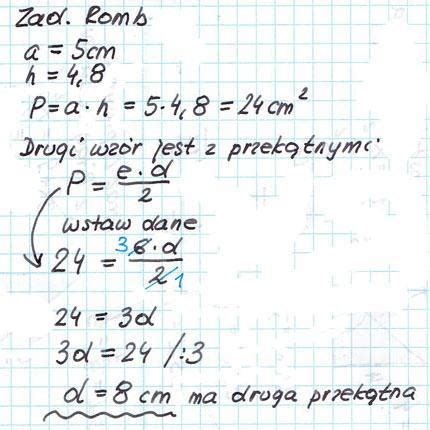 Zad. Romb
a = 5cm
h = 4,8
P = a · h = 5 · 4,8 = 24 cm²
Drugi wzór jest z przekątnymi:
P = e · d / 2
wstaw dane
24 = 3 6 · d / 2 1
24 = 3d
3d = 24 /:3
d = 8 cm ma druga przekątna